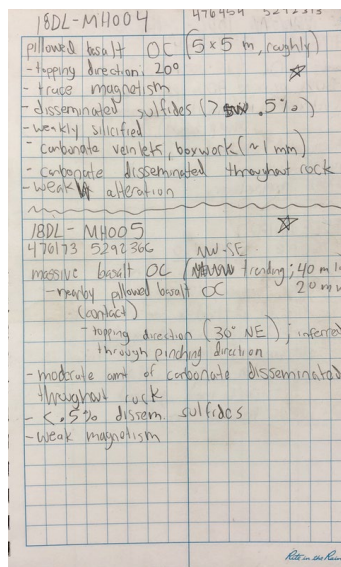 18DL-MH004 476454 5272313
pillowed basalt OC (5 x 5 m, roughly)
- topping direction: 20°
- trace magnetism
- disseminated sulfides (> .5%)
- weakly silicified
- carbonate veinlets, boxwork (~1mm)
- carbonate disseminated throughout rock
- weak alteration
18DL-MH005
476173 5292366 NW-SE
massive basalt OC ( trending; 40 m
- nearby pillowed basalt OC 20 m
(contact)
- topping direction (30° NE); inferred
through pinching direction
- moderate amt of carbonate disseminated
throughout rock
- <.5% dissem. sulfides
- weak magnetism
Rite in the Rain